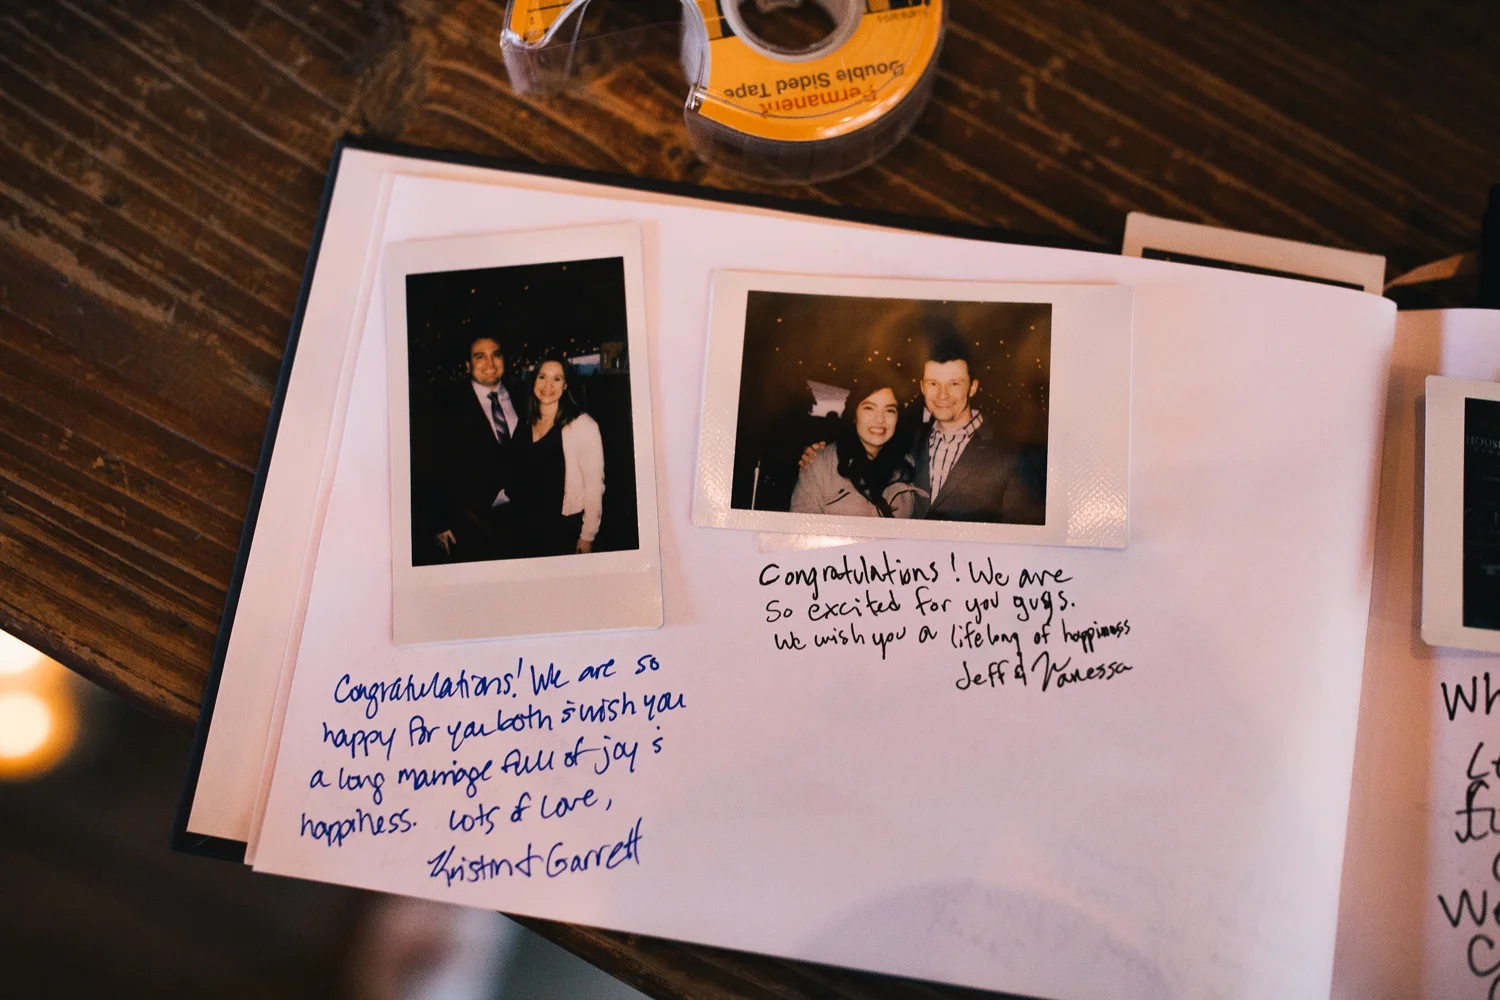 Permanent
Double Sided Tape
Congratulations! We are so
happy for you both & wish you
a long marriage full of joy &
happiness. Lots of Love,
Kristin & Garrett
Congratulations! We are
So excited for you guys.
We wish you a lifelong of happiness
Jeff & Vanessa
HOUS
Wh